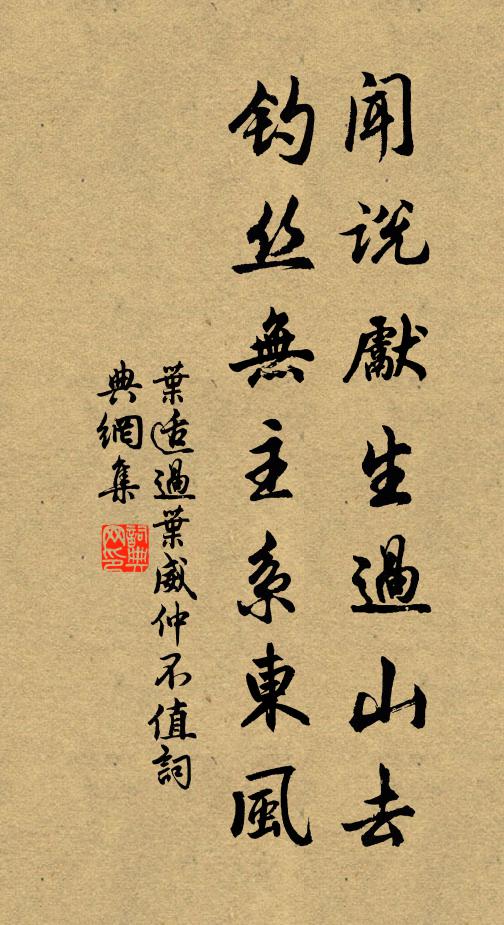 闻說獻生過山去
钓丝無主系東風
葉适過葉威仲不值詞
典網集
詞典网印